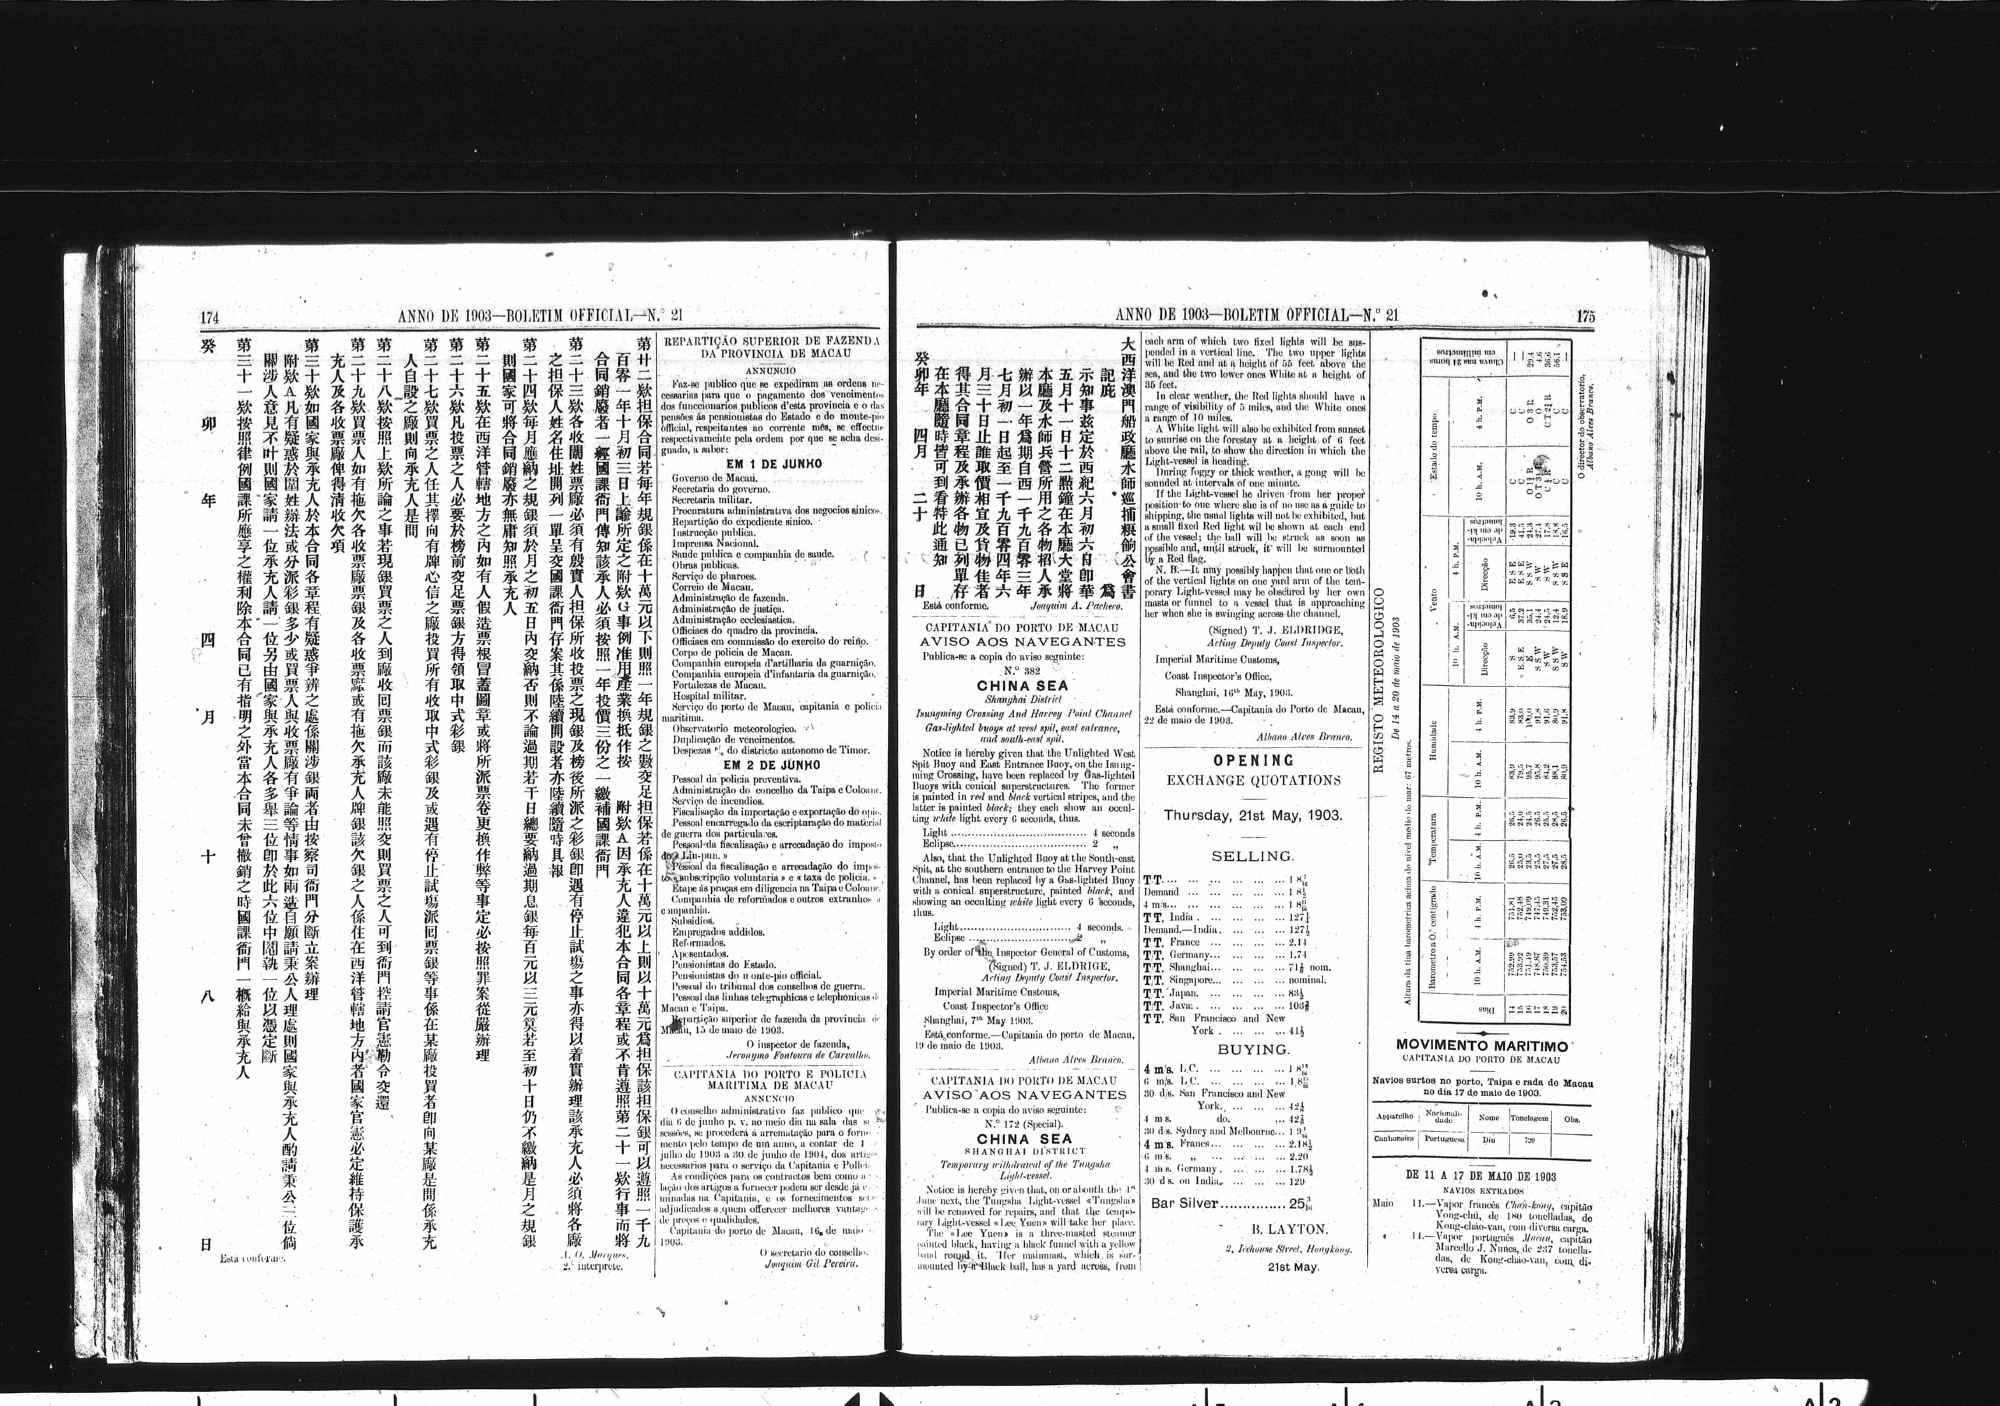 174
ANNO DE 1903—BOLETIM OFFICIAL—N.º 21
第廿二欵担保合同若每年規銀係在十萬元以下則照一年規銀之數交足担保若係在十萬元以上則以十萬元爲担保該担保銀可以遵照一千九
百零一年十月初三日上諭所定之附欵G事例准用產業換抵作按 附欵A因承充人違犯本合同各章程或不肯遵照第二十一欵行事而將
合同銷廢者一經國課衙門傳知該承人必須按照一年投價三份之一繳補國課衙門
第二十三欵各收闈姓票廠必須有殷實人担保所收投票之現銀及榜後所派之彩銀卽遇有停止試塲之事亦得以着實辦理該承充人必須將各廠
之担保人姓名住址開列一單呈交國課衙門存案其係陸續開設者亦陸續隨時具報
第二十四欵每月應納之規銀須於月之初五日內交納否則不論過期若干日總要納過期息銀每百元以三元算若至初十日仍不繳納是月之規銀
則國家可將合同銷廢亦無庸知照承充人
第二十五欵在西洋管轄地方之內如有人假造票根冒蓋圖章或將所派票卷更換作弊等事定必按照罪案從嚴辦理
第二十六欵凡投票之人必要於榜前交足票銀方得領取中式彩銀
第二十七欵買票之人任其擇向有牌心信之廠投買所有收取中式彩銀及或遇有停止試塲派囘票銀等事係在某廠投買者卽向某廠是問係承充
人自設之廠則向承充人是問
第二十八欵按照上欵所論之事若現銀買票之人到廠收囘票銀而該廠未能照交則買票之人可到衙門控請官憲勒令交還
第二十九欵買票人如有拖欠各收票廠票銀及各收票廠或有拖欠承充人牌銀該欠銀之人係住在西洋管轄地方內者國家官憲必定維持保護承
充人及各收票廠俾得清收欠項
第三十欵如國家與承充人於本合同各章程有疑惑爭辨之處係關涉銀両者由按察司衙門分斷立案辦理
附欵A凡有疑惑於闈姓辦法或分派彩銀多少或買票人與收票廠有爭論等情事如兩造自願請秉公人理處則國家與承充人酌請秉公三位倘
關涉人意見不叶則國家請一位承充人請一位另由國家與承充人各多舉三位卽於此六位中鬮執一位以憑定斷
第三十一欵按照律例國課所應享之權利除本合同已有指明之外當本合同未曾撤銷之時國課衙門一概給與承充人
癸卯年四月十八日
Está conforme.
A. O. Marques,
2.º interprete.
REPARTIÇÃO SUPERIOR DE FAZENDA
DA PROVINCIA DE MACAU
ANNUNCIO
Faz-se publico que se expediram as ordens ne-
cessarias para que o pagamento dos vencimentos
dos funccionarios publicos d'esta provincia e o das
pensões ás pensionistas do Estado e do monte-pio
official, respeitantes ao corrente mês, se effectue
respectivamente pela ordem por que se acha desi-
gnado, a saber:
EM 1 DE JUNHO
Governo de Macau.
Secretaria do governo.
Secretaria militar.
Procuratura administrativa dos negocios sinicos.
Repartição do expediente sinico.
Instrucção publica.
Imprensa Nacional.
Saude publica e companhia de saude.
Obras publicas.
Serviço de pharoes.
Correio de Macau.
Administração de fazenda.
Administração de justiça.
Administração ecclesiastica.
Officiaes do quadro da provincia.
Officiaes em commissão do exercito do reino.
Corpo de policia de Macau.
Companhia europeia d'artilharia da guarnição.
Companhia europeia d'infantaria da guarnição.
Fortalezas de Macau.
Hospital militar.
Serviço do porto de Macau, capitania e policia
maritima.
Observatorio meteorologico.
Duplicação de vencimentos.
Despezas do districto autonomo de Timor.
EM 2 DE JUNHO
Pessoal da policia preventiva.
Administração do concelho da Taipa e Coloane.
Serviço de incendios.
Fiscalisação da importação e exportação do opio.
Pessoal encarregado da escripturação do material
de guerra dos particulares.
Pessoal da fiscalisação e arrecadação do imposto
do «Lin-pun.»
Pessoal da fiscalisação e arrecadação do impos-
to «subscripção voluntaria» e «taxa de policia.»
Etape ás praças em diligencia na Taipa e Coloane.
Companhia de reformados e outros extranhos a
companhia.
Subsidios.
Empregados addidos.
Reformados.
Aposentados.
Pensionistas do Estado.
Pensionistas do monte-pio official.
Pessoal do tribunal dos conselhos de guerra.
Pessoal das linhas telegraphicas e telephonicas de
Macau e Taipa.
Repartição superior de fazenda da provincia de
Macau, 15 de maio de 1903.
O inspector de fazenda,
Jeronymo Fontoura de Carvalho.
CAPITANIA DO PORTO E POLICIA
MARITIMA DE MACAU
ANNUNCIO
O conselho administrativo faz publico que
dia 6 de junho p. v. ao meio dia na sala das
sessões, se procederá á arrematação para o forne-
mento pelo tempo de um anno, a contar de 1
julho de 1903 a 30 de junho de 1904, dos artigos
necessarios para o serviço da Capitania e Policia
As condições para os contractos bem como a
lação dos artigos a fornecer podem ser desde já
minadas na Capitania, e os fornecimentos
adjudicados a quem offerecer melhores vantagens
de preços e qualidades.
Capitania do porto de Macau, 16 de maio
1903.
O secretario do conselho,
Joaquim Gil Pereira.
ANNO DE 1903—BOLETIM OFFICIAL—N.º 21
175
大西洋澳門船政廳水師巡捕粮餉公會書
記庇 爲
示知事兹定於西紀六月初六日卽華
五月十一日十二點鐘在本廳大堂將
本廳及水師兵營所用之各物招人承
辦以一年爲期自西一千九百零三年
七月初一日起至一千九百零四年六
月三十日止誰取價相宜及貨物佳者
得其合同章程及承辦各物已列單存
在本廳隨時皆可到看特此通知
癸卯年 四月 二十 日
Está conforme.
Joaquim A. Pacheco.
CAPITANIA DO PORTO DE MACAU
AVISO AOS NAVEGANTES
Publica-se a copia do aviso seguinte:
N.º 382
CHINA SEA
Shanghai District
Tsungming Crossing And Harvey Point Channel
Gas-lighted buoys at west spit, east entrance,
and south-east spit.
Notice is hereby given that the Unlighted West
Spit Buoy and East Entrance Buoy, on the Tsung-
ming Crossing, have been replaced by Gas-lighted
Buoys with conical superstructures. The former
is painted in red and black vertical stripes, and the
latter is painted black; they each show an occul-
ting white light every 6 seconds, thus.
Light .................... 4 seconds
Eclipse .................... 2 „
Also, that the Unlighted Buoy at the South-east
Spit, at the southern entrance to the Harvey Point
Channel, has been replaced by a Gas-lighted Buoy
with a conical superstructure, painted black, and
showing an occulting white light every 6 seconds,
thus.
Light .................... 4 seconds.
Eclipse .................... 2 „
By order of the Inspector General of Customs,
(Signed) T. J. ELDRIGE,
Acting Deputy Coast Inspector.
Imperial Maritime Customs,
Coast Inspector's Office
Shanghai, 7th May 1903.
Está conforme.—Capitania do porto de Macau,
19 de maio de 1903.
Albano Alves Branco.
CAPITANIA DO PORTO DE MACAU
AVISO AOS NAVEGANTES
Publica-se a copia do aviso seguinte:
N.º 172 (Special).
CHINA SEA
SHANGHAI DISTRICT
Temporary withdrawal of the Tungsha
Light-vessel.
Notice is hereby given that, on or abouth the 1st
June next, the Tungsha Light-vessel «Tungsha»
will be removed for repairs, and that the tempo-
rary Light-vessel «Lee Yuen» will take her place.
The «Lee Yuen» is a three-masted steamer
painted black, having a black funnel with a yellow
band round it. Her mainmast, which is sur-
mounted by a Black ball, has a yard across, from
each arm of which two fixed lights will be sus-
pended in a vertical line. The two upper lights
will be Red and at a height of 55 feet above the
sea, and the two lower ones White at a height of
35 feet.
In clear weather, the Red lights should have a
range of visibility of 5 miles, and the White ones
a range of 10 miles.
A White light will also be exhibited from sunset
to sunrise on the forestay at a height of 6 feet
above the rail, to show the direction in which the
Light-vessel is heading.
During foggy or thick weather, a gong will be
sounded at intervals of one minute.
If the Light-vessel he driven from her proper
position to one where she is of no use as a guide to
shipping, the usual lights will not be exhibited, but
a small fixed Red light wil be shown at each end
of the vessel; the ball will be struck as soon as
possible and, until struck, it will be surmounted
by a Red flag.
N. B.—It may possibly happen that one or both
of the vertical lights on one yard arm of the tem-
porary Light-vessel may be obscured by her own
masts or funnel to a vessel that is approaching
her when she is swinging across the channel.
(Signed) T. J. ELDRIDGE,
Acting Deputy Coast Inspector.
Imperial Maritime Customs,
Coast Inspector's Office,
Shanghai, 16th May, 1903.
Está conforme.—Capitania do Porto de Macau,
22 de maio de 1903.
Albano Alves Branco.
OPENING
EXCHANGE QUOTATIONS
Thursday, 21st May, 1903.
SELLING.
T T.
Demand
4 m/s
T T. India
Demand.—India
T T. France 2.14
T T. Germany 1.74
T T. Shanghai nom.
T T. Singapore nominal.
T T. Japan
T T. Java
T T. San Francisco and New
York 41½
BUYING.
4 m's. L.C.
6 m/s. L.C.
30 d/s. San Francisco and New
York
4 m s. do.
30 d/s. Sydney and Melbourne
4 m's. Francs 2.18½
6 m's. „ 2.20
4 m s. Germany
30 d s. on India 129
Bar Silver
B. LAYTON.
2, Icehouse Street, Hongkong.
21st May.
REGISTO METEOROLOGICO
De 14 a 20 de maio de 1903
Altura da tina barometrica acima do nivel medio do mar: 67 metros.
Dias
Barometro a 0.º centigrado
Temperatura
Humidade
Vento
Estado do tempo
Chuva nas 24 horas em millimetros
10 h. A.M.
4 h. P.M.
Direcção
O director do observatorio,
Albano Alves Branco.
MOVIMENTO MARITIMO
CAPITANIA DO PORTO DE MACAU
Navios surtos no porto, Taipa e rada de Macau
no dia 17 de maio de 1903.
Apparelho Nacionali-dade Nome Tonelagem Obs.
Canhoneira Portuguesa Diu 720
DE 11 A 17 DE MAIO DE 1903
NAVIOS ENTRADOS
Maio 11.—Vapor francês Chán-kong, capitão
Vong-chú, de 180 toneladas, de
Kong-cháo-van, com diversa carga.
11.—Vapor português Macau, capitão
Marcello J. Nunes, de 237 tonella-
das, de Kong-chao-van, com di-
versa carga.